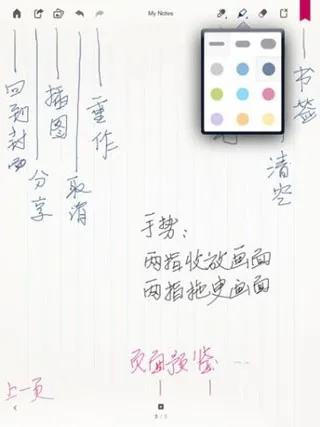 My Notes
回到封面
分享
插图
取消
重作
书签
清空
手势：
两指收放画面
两指拖曳画面
页面预览
上一页